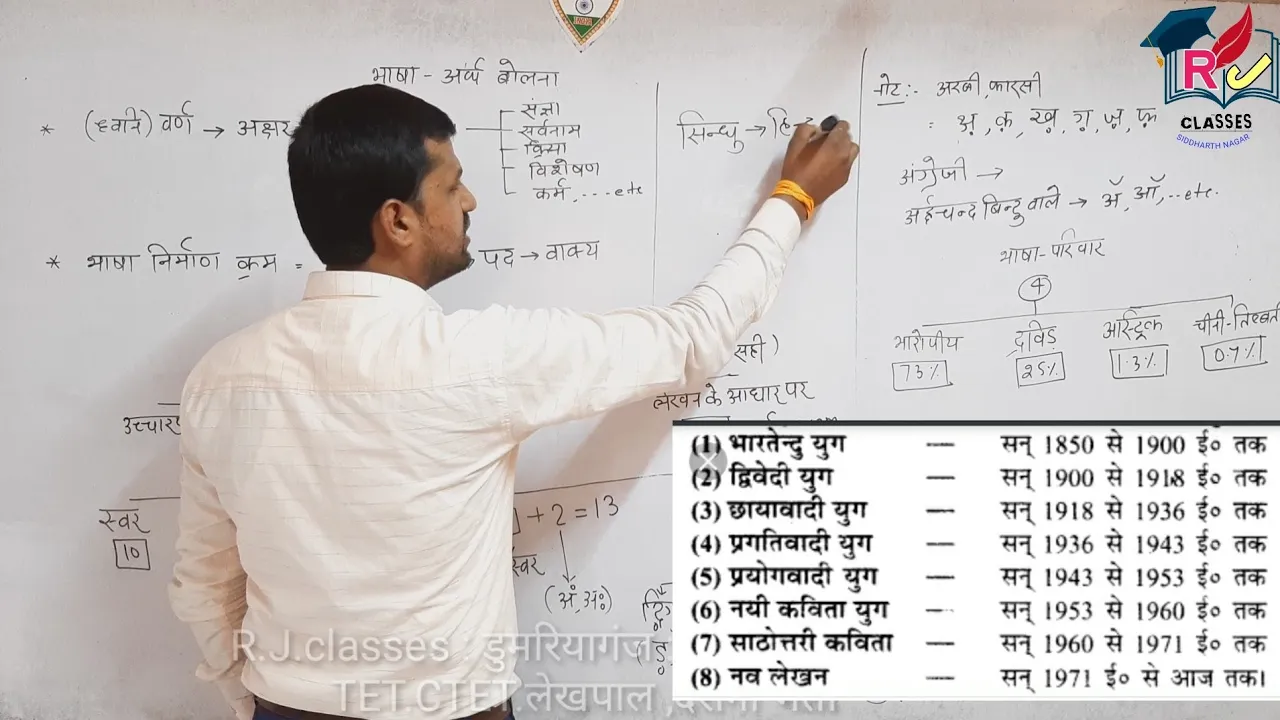 INDIA
भाषा - अर्थ बोलना
* (ध्वनि) वर्ण → अक्षर
संज्ञा
सर्वनाम
क्रिया
विशेषण
कर्म, ... etc
* भाषा निर्माण क्रम =
पद → वाक्य
सिन्धु →
नोट :- अरबी, फारसी
= अ़, क़, ख़, ग़, ज़, फ़
अंग्रेजी →
अर्द्धचन्द्र बिन्दु वाले → अॅ, ऑ, ... etc.
भाषा-परिवार
4
भारोपीय द्रविड़ आस्ट्रिक चीनी-तिब्बती
73% 25% 1.3% 0.7%
सही)
लेखन के आधार पर
स्वर
10
+ 2 = 13
स्वर
(अं, अः)
R J
CLASSES
SIDDHARTH NAGAR
(1) भारतेन्दु युग — सन् 1850 से 1900 ई० तक
(2) द्विवेदी युग — सन् 1900 से 1918 ई० तक
(3) छायावादी युग — सन् 1918 से 1936 ई० तक
(4) प्रगतिवादी युग — सन् 1936 से 1943 ई० तक
(5) प्रयोगवादी युग — सन् 1943 से 1953 ई० तक
(6) नयी कविता युग — सन् 1953 से 1960 ई० तक
(7) साठोत्तरी कविता — सन् 1960 से 1971 ई० तक
(8) नव लेखन — सन् 1971 ई० से आज तक।
R.J.classes : डुमरियागंज
TET.CTET.लेखपाल